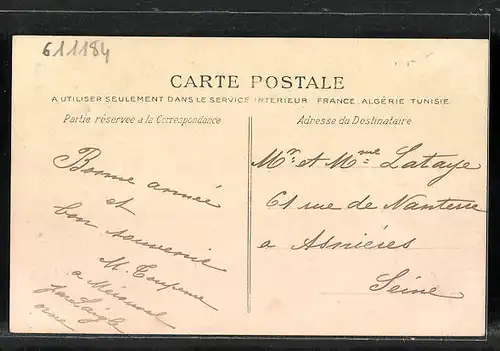 611184
CARTE POSTALE
A UTILISER SEULEMENT DANS LE SERVICE INTERIEUR FRANCE, ALGÉRIE TUNISIE
Partie réservée a la Correspondance
Adresse du Destinataire
Bonne année
et
bon souvenir
M.
a
Laigle
orne
Mr. et Mme Lataye
61 rue de Nanterre
a Asnières
Seine